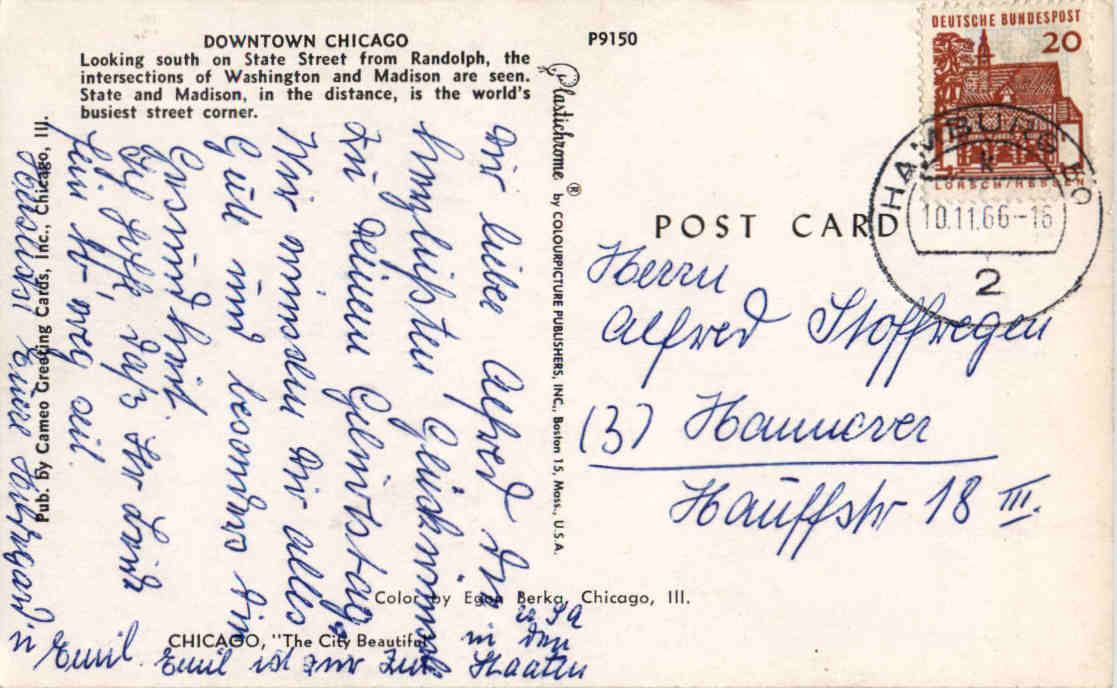 DOWNTOWN CHICAGO
Looking south on State Street from Randolph, the
intersections of Washington and Madison are seen.
State and Madison, in the distance, is the world's
busiest street corner.
P9150
Pub. by Cameo Greeting Cards, Inc., Chicago, Ill.
Dir lieber Alfred die
herzlichsten Glückwünsche
zu deinem Geburtstag.
Wir wünschen Dir alles
Gute und besonders
Gesundheit.
Ich hoffe, daß Ihr
Eure
u Emil. Emil ist zur Zeit
in den
Staaten
USA
Plastichrome ® by COLOURPICTURE PUBLISHERS, INC., Boston 15, Mass., U.S.A.
Color by Egon Berka, Chicago, Ill.
CHICAGO, "The City Beautiful"
DEUTSCHE BUNDESPOST
20
LORSCH/HESSEN
HAMBURG
k
10.11.66-16
2
POST CARD
Herrn
Alfred Stoffregen
(3) Hannover
Hauffstr 18 III.